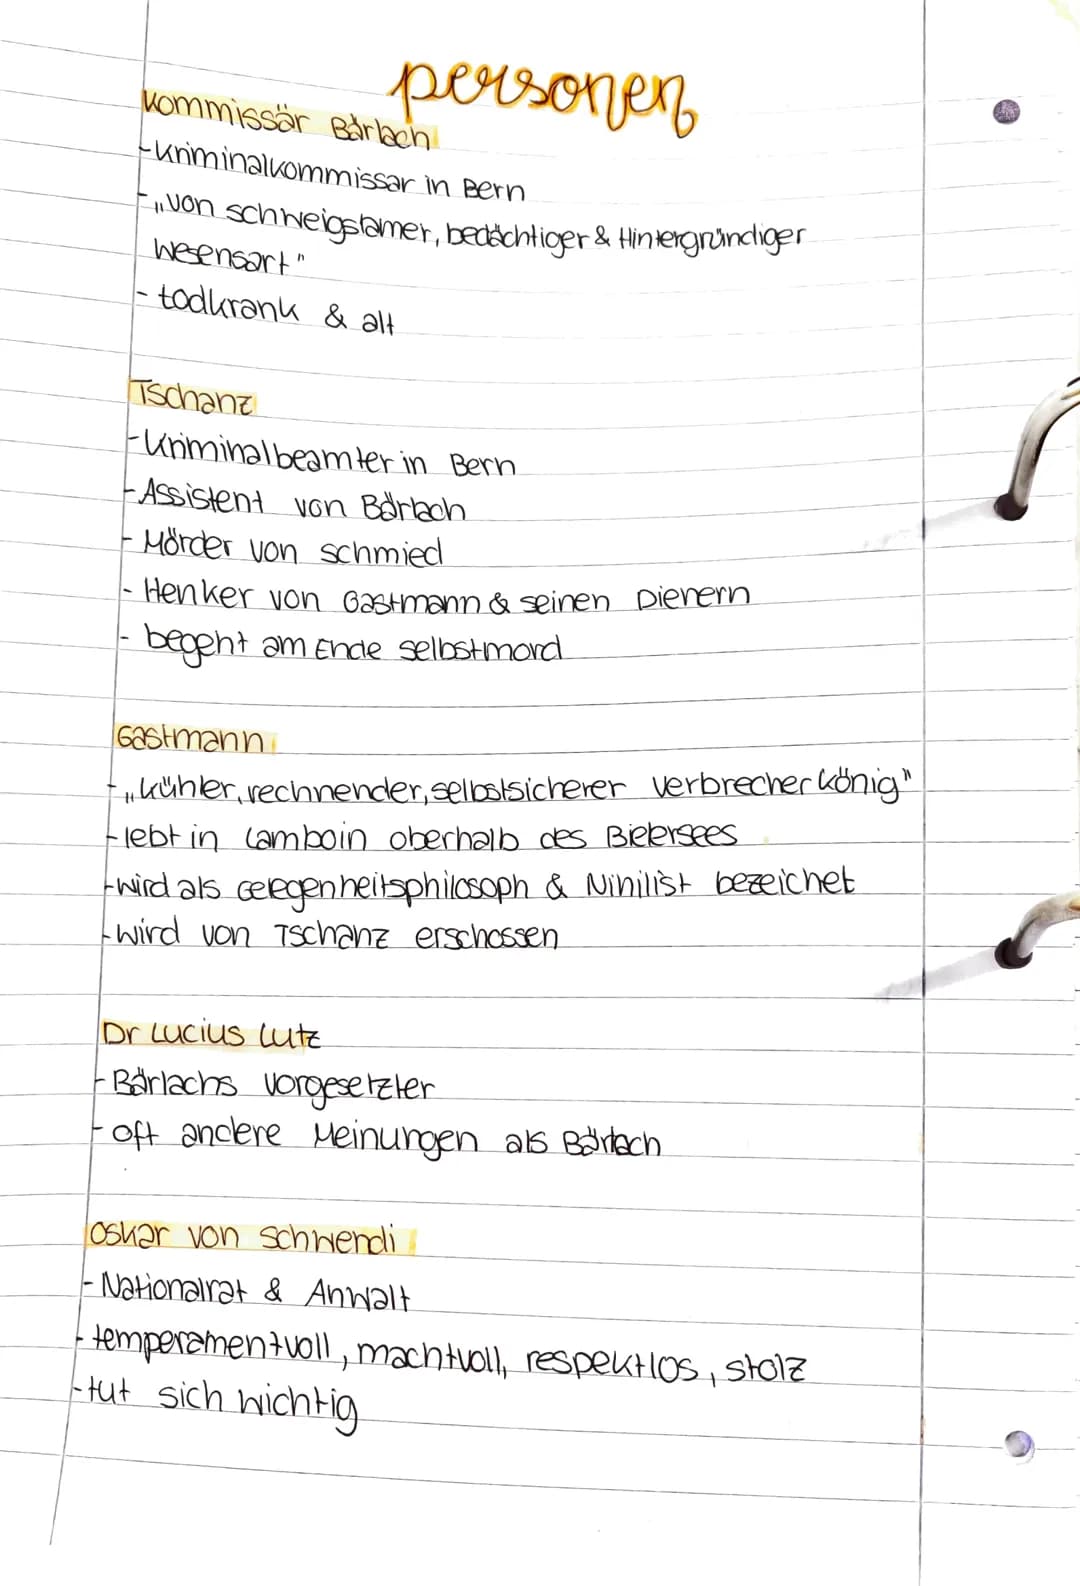 personen
Kommissär Bärlach
- Kriminalkommissar in Bern
- „von schweigsamer, bedächtiger & Hintergründiger
Wesensart"
- todkrank & alt
Tschanz
- Kriminalbeamter in Bern
- Assistent von Bärlach
- Mörder von schmied
- Henker von Gastmann & seinen Dienern
- begeht am Ende selbstmord
Gastmann
- „kühler, rechnender, selbstsicherer Verbrecherkönig"
- lebt in Lamboin oberhalb des Bielersees
- wird als Gelegenheitsphilosoph & Nihilist bezeichet
- wird von Tschanz erschossen
Dr Lucius Lutz
- Bärlachs Vorgesetzter
- oft andere Meinungen als Bärlach
Oskar von Schwendi
- Nationalrat & Anwalt
- temperamentvoll, machtvoll, respektlos, stolz
- tut sich wichtig